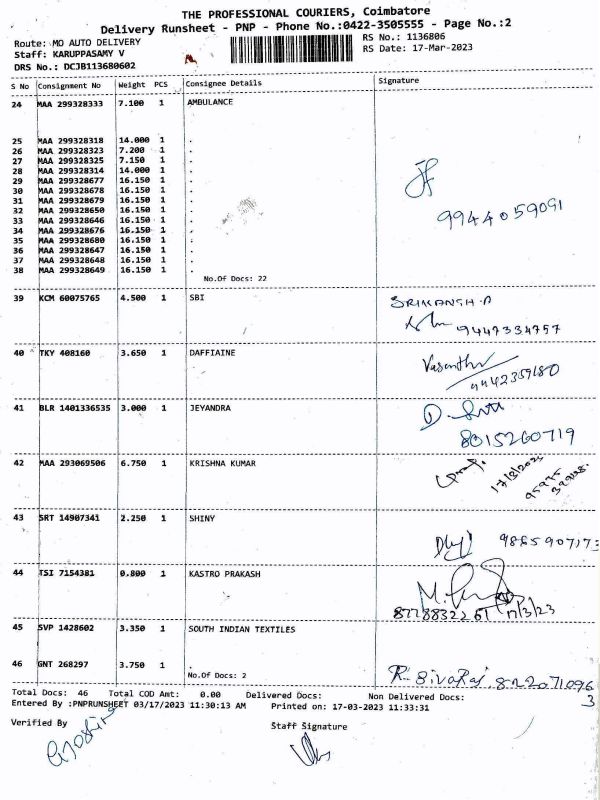 THE PROFESSIONAL COURIERS, Coimbatore
Delivery Runsheet - PNP - Phone No.:0422-3505555 - Page No.:2
Route: MO AUTO DELIVERY RS No.: 1136806
Staff: KARUPPASAMY V RS Date: 17-Mar-2023
DRS No.: DCJB113680602
S No Consignment No Weight PCS Consignee Details Signature
24 MAA 299328333 7.100 1 AMBULANCE
25 MAA 299328318 14.000 1 .
26 MAA 299328323 7.200 1 .
27 MAA 299328325 7.150 1 .
28 MAA 299328314 14.000 1 .
29 MAA 299328677 16.150 1 .
30 MAA 299328678 16.150 1 .
31 MAA 299328679 16.150 1 .
32 MAA 299328650 16.150 1 .
33 MAA 299328646 16.150 1 .
34 MAA 299328676 16.150 1 .
35 MAA 299328680 16.150 1 .
36 MAA 299328647 16.150 1 .
37 MAA 299328648 16.150 1 .
38 MAA 299328649 16.150 1 .
9944059091
No.Of Docs: 22
39 KCM 60075765 4.500 1 SBI
9447334757
40 TKY 408160 3.650 1 DAFFIAINE
Vasanthi
9442359180
41 BLR 1401336535 3.000 1 JEYANDRA
8015260719
42 MAA 293069506 6.750 1 KRISHNA KUMAR
43 SRT 14907341 2.250 1 SHINY
44 TSI 7154381 0.800 1 KASTRO PRAKASH
17/3/23
45 SVP 1428602 3.350 1 SOUTH INDIAN TEXTILES
46 GNT 268297 3.750 1
No.Of Docs: 2
Total Docs: 46 Total COD Amt: 0.00 Delivered Docs: Non Delivered Docs:
Entered By :PNPRUNSHEET 03/17/2023 11:30:13 AM Printed on: 17-03-2023 11:33:31
Verified By Staff Signature